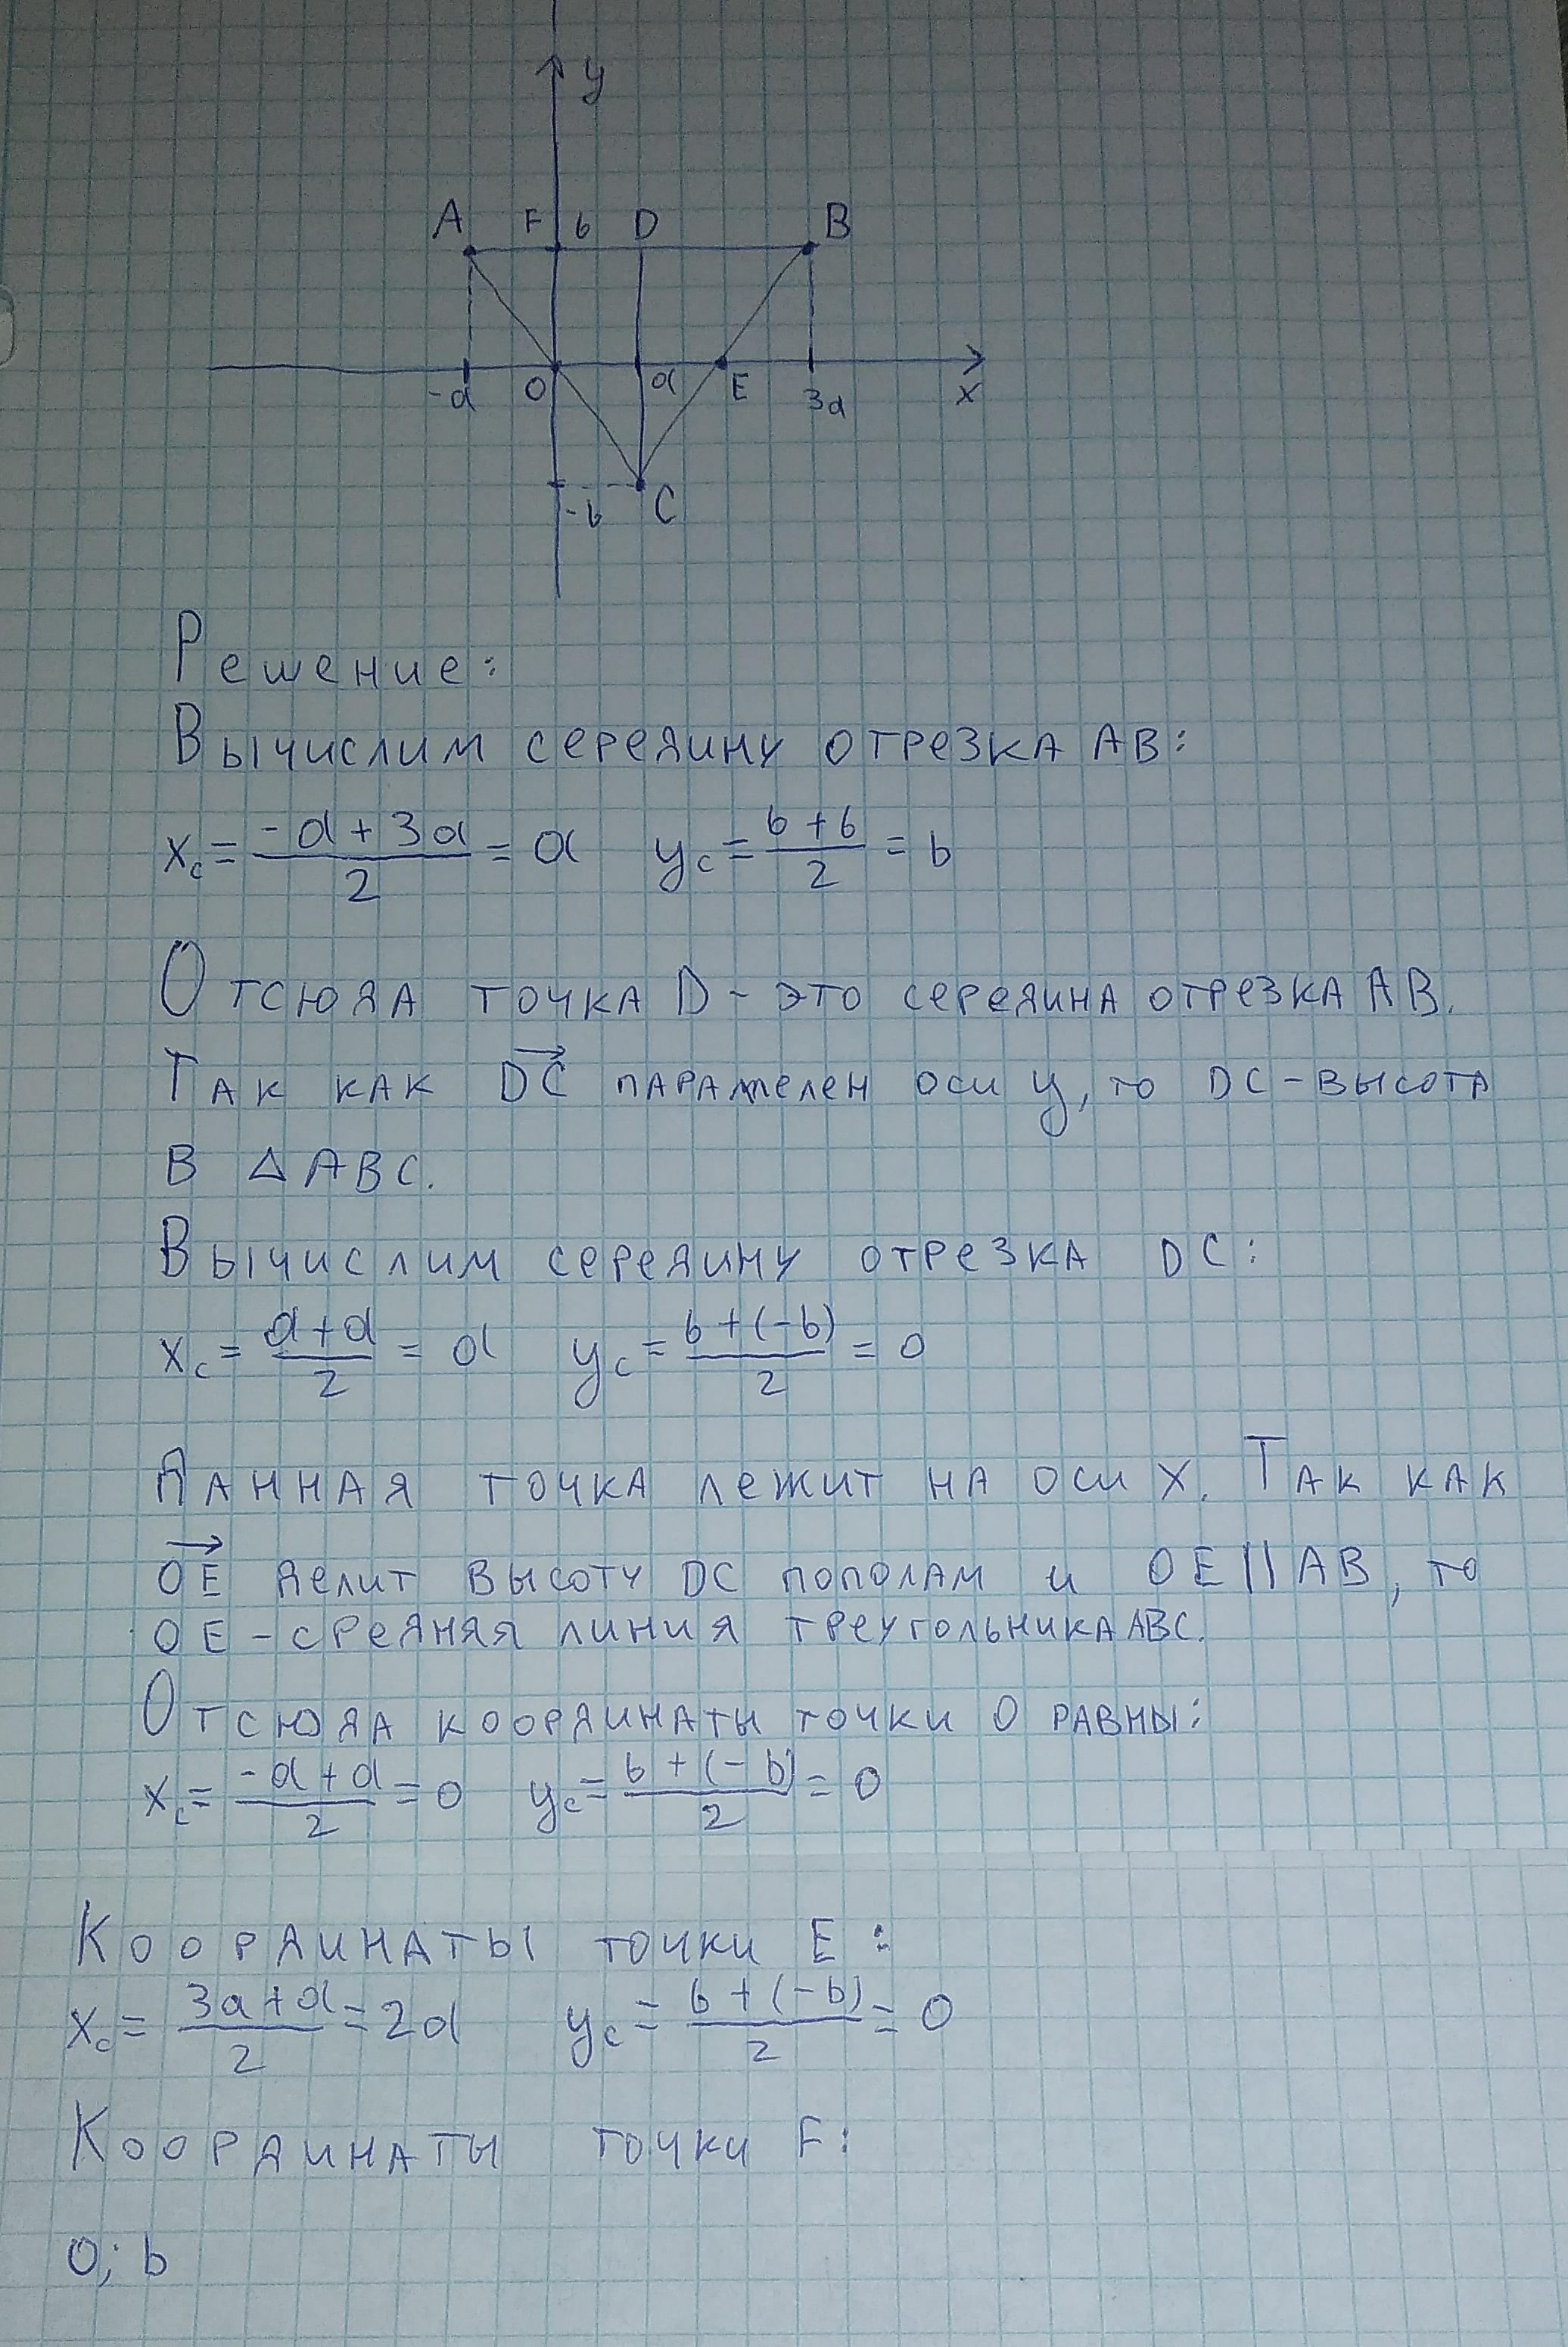 y
A F b D B
-a O a E 3a x
-b C
Решение:
Вычислим середину отрезка AB:
x_c = (-a + 3a)/2 = a   y_c = (b + b)/2 = b
Отсюда точка D - это середина отрезка AB.
Так как DC⃗ параллелен оси y, то DC - высота
в △ABC.
Вычислим середину отрезка DC:
x_c = (a + a)/2 = a   y_c = (b + (-b))/2 = 0
Данная точка лежит на оси x. Так как
OE⃗ делит высоту DC пополам и OE || AB, то
OE - средняя линия треугольника ABC.
Отсюда координаты точки O равны:
x_c = (-a + a)/2 = 0   y_c = (b + (-b))/2 = 0
Координаты точки E:
x_c = (3a + a)/2 = 2a   y_c = (b + (-b))/2 = 0
Координаты точки F:
0; b